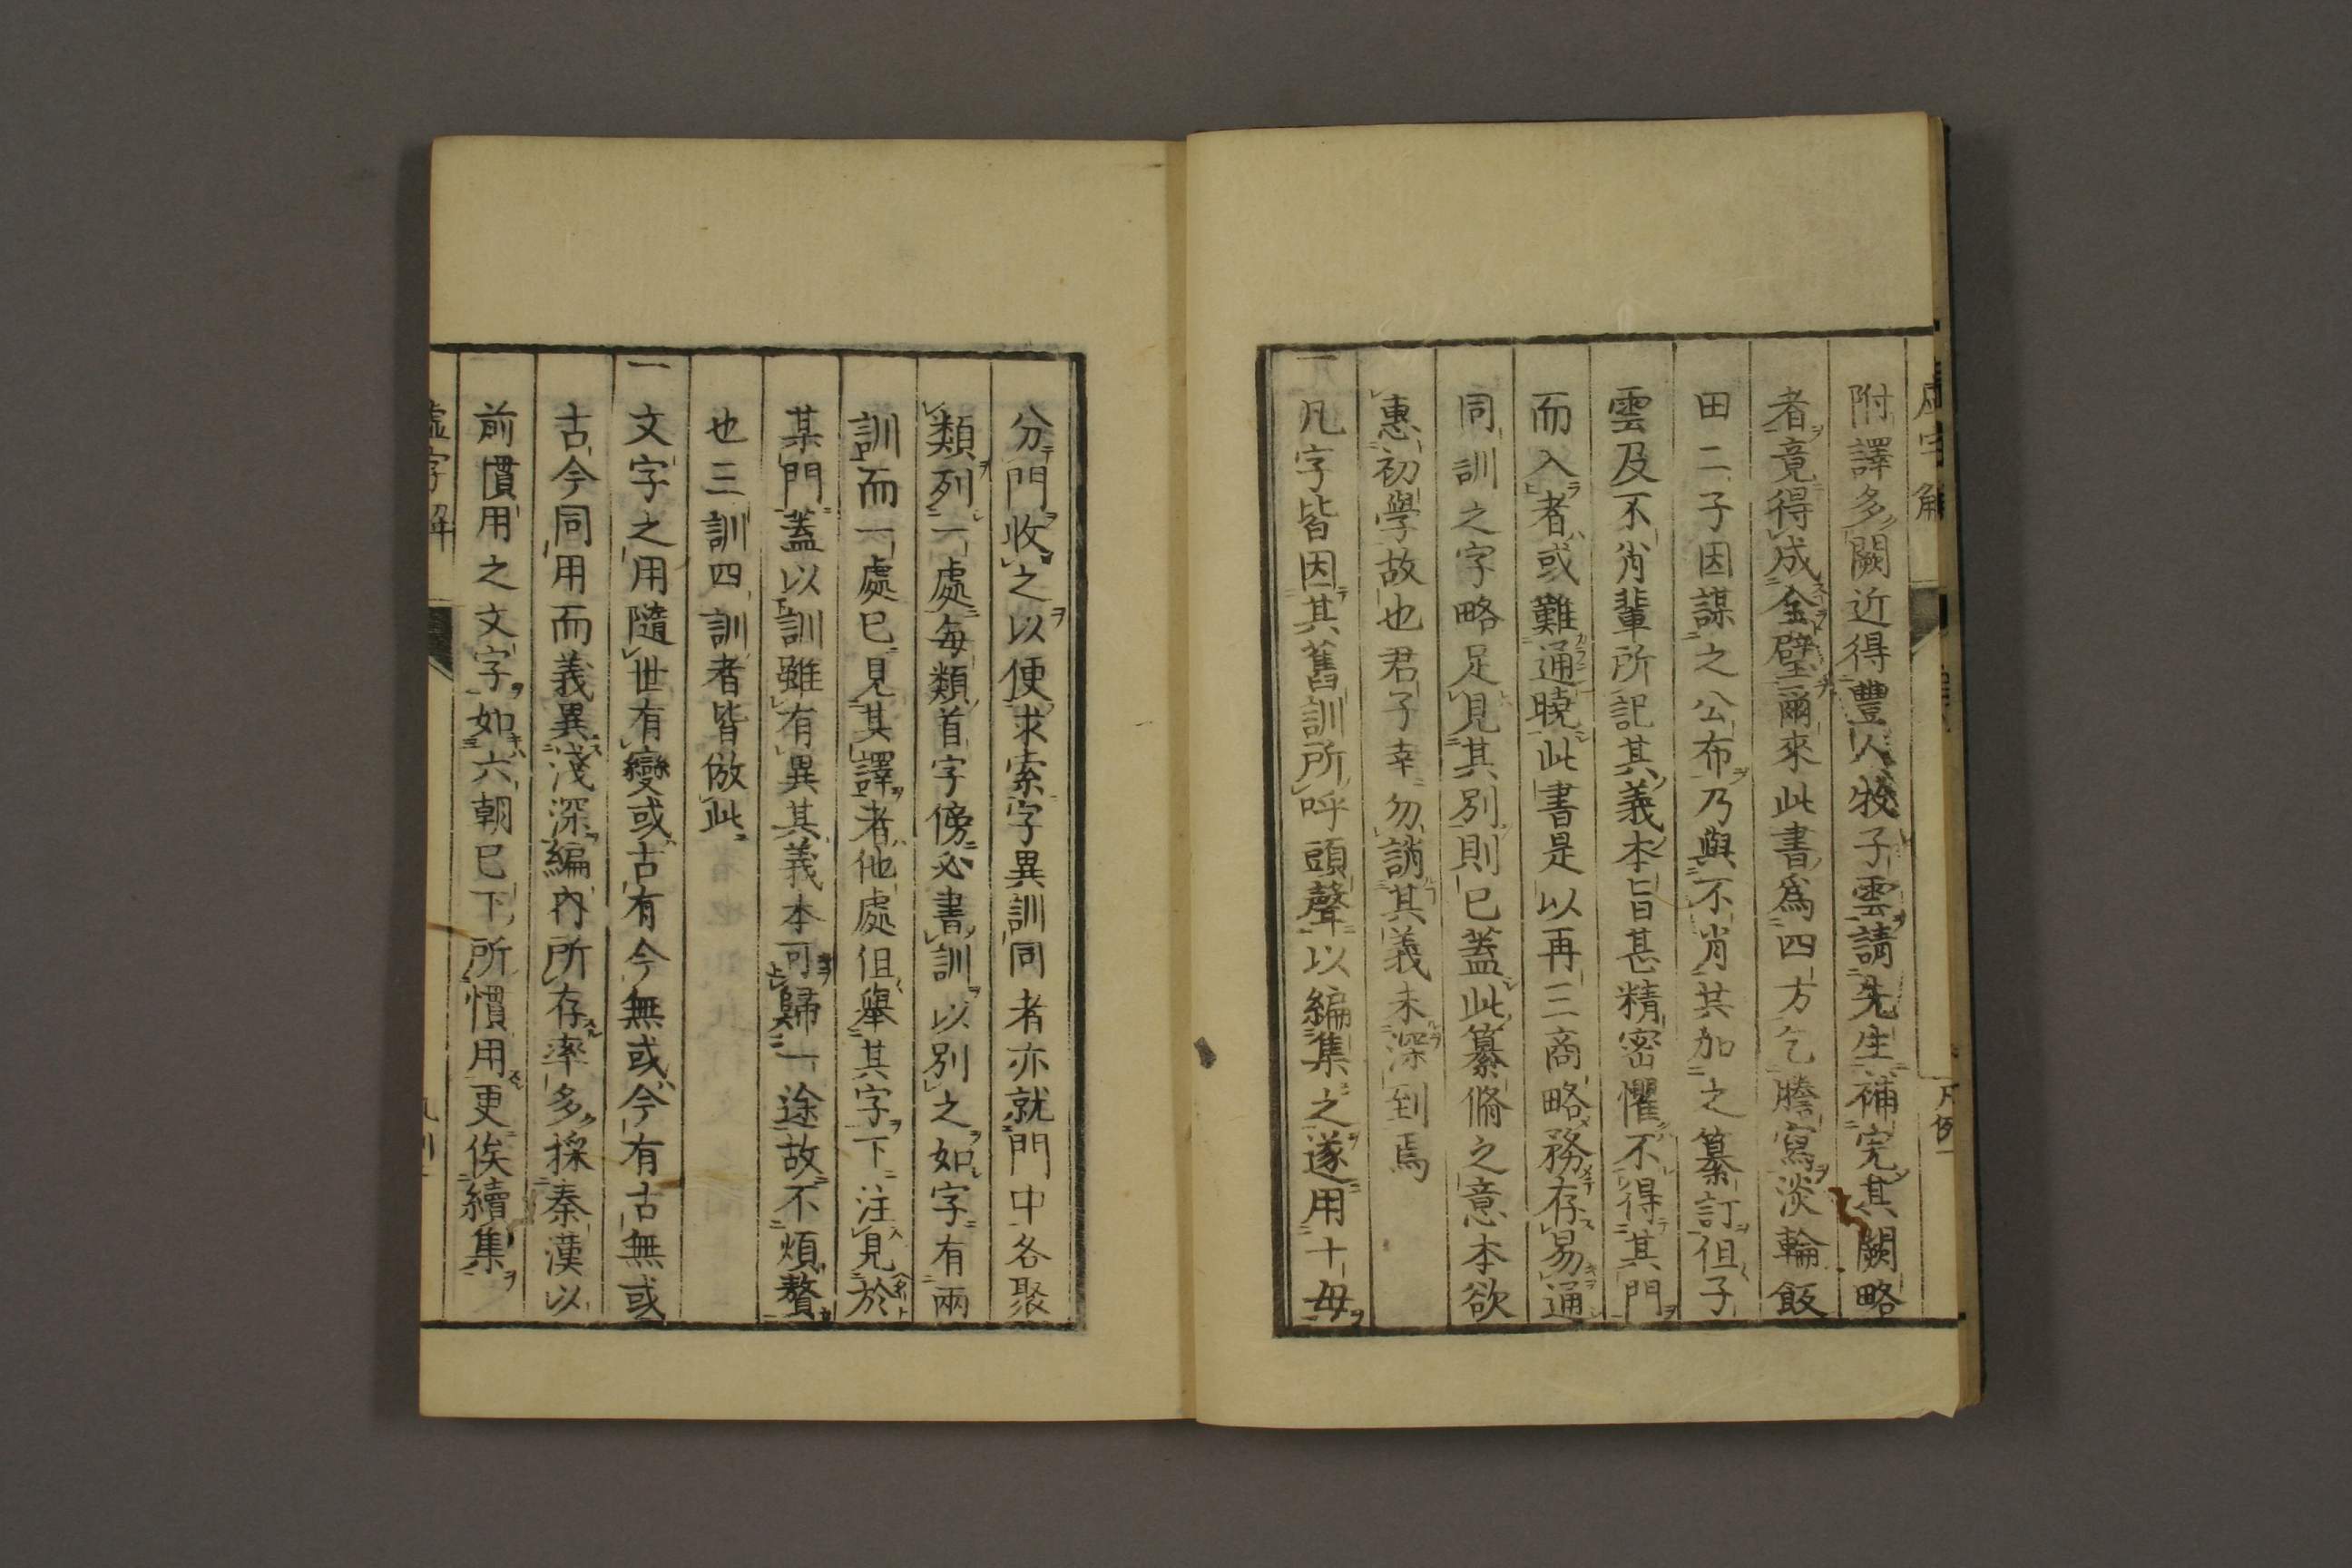 附譯多闕近得豐人牧子雲請先生補完其闕略
者竟得成金壁爾來此書爲四方乞謄寫淡輪飯
田二子因謀之公布乃與不肖共加之纂訂但子
雲及不肖輩所記其義本旨甚精密懼不得其門
而入者或難通曉此書是以再三商略務存易通
同訓之字略足見其別則已蓋此纂脩之意本欲
惠初學故也君子幸勿誚其義未深到焉
一凡字皆因其舊訓所呼頭聲以編集之遂用十毋
分門收之以便求索字異訓同者亦就門中各聚
類列一處每類首字傍必書訓以別之如字有兩
訓而一處已見其譯者他處但擧其字下注見於
某門蓋以訓雖有異其義本可歸一途故不煩贅
也三訓四訓者皆倣此
一文字之用隨世有變或古有今無或今有古無或
古今同用而義異淺深編內所存率多採秦漢以
前慣用之文字如六朝已下所慣用更俟續集
虛字解